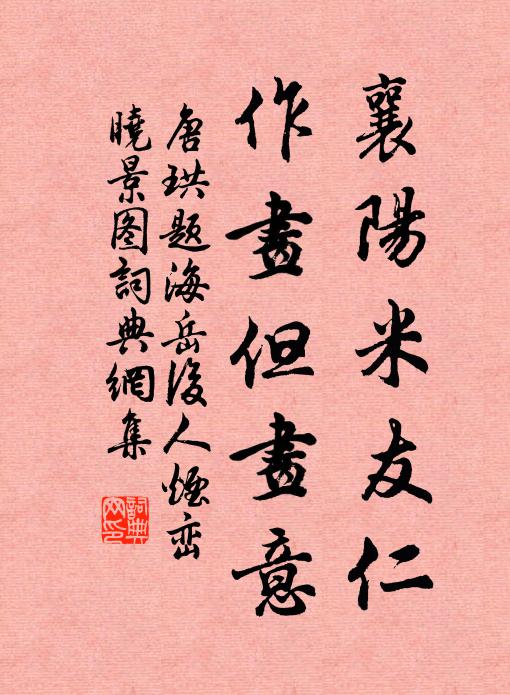 襄陽米友仁
作畫但畫意
唐珙题海岳後人煙峦
曉景图詞典網集
詞典網印